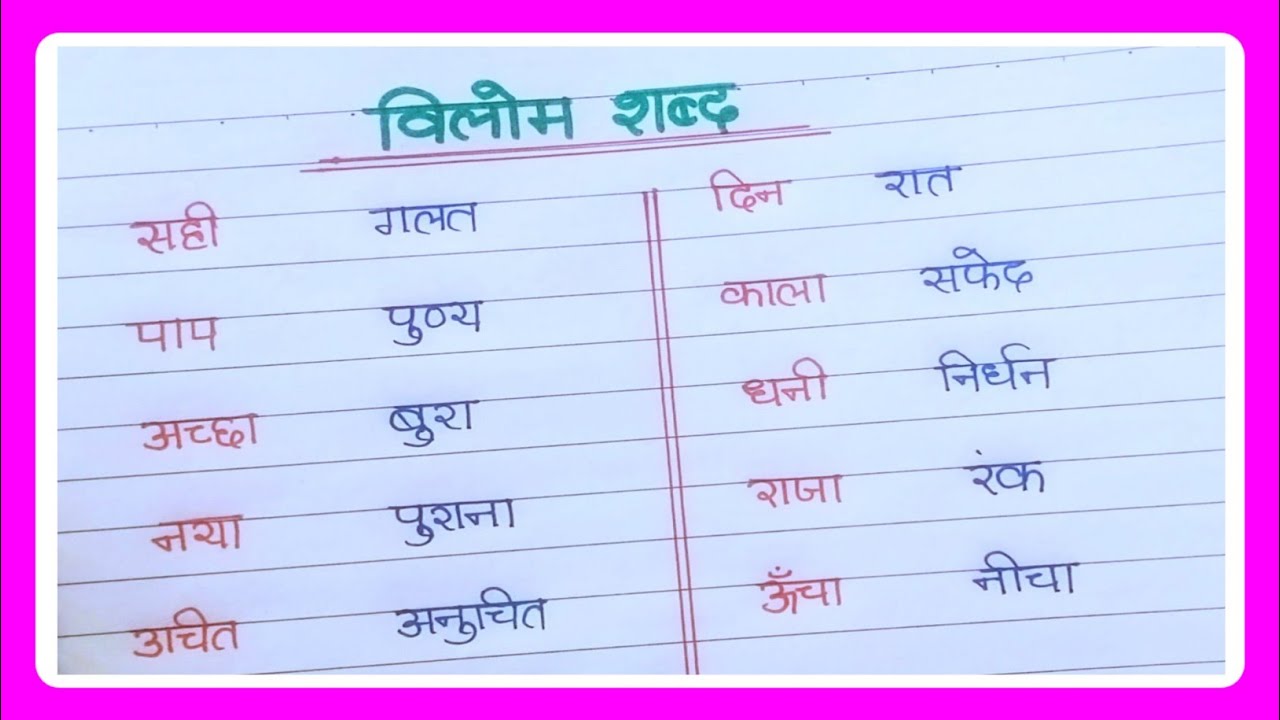 विलोम शब्द
सही गलत
पाप पुण्य
अच्छा बुरा
नया पुराना
उचित अनुचित
दिन रात
काला सफेद
धनी निर्धन
राजा रंक
ऊँचा नीचा